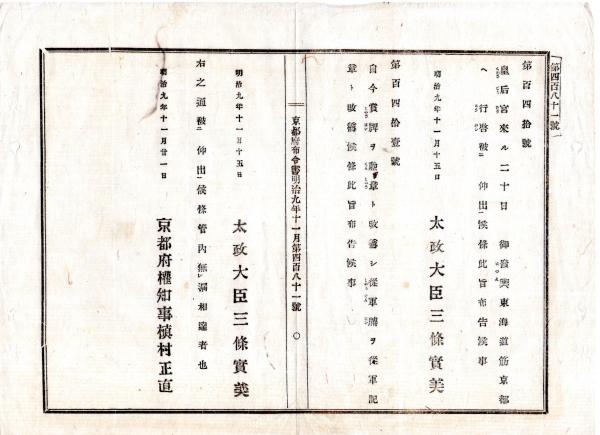 第四百八十一號
第百四拾號
皇后宮來ル二十日 御發輿東海道筋京都
ヘ 行啓被二 仰出一候條此旨布告候事
明治九年十一月十五日
太政大臣三條實美
第百四拾壹號
自今賞牌ヲ勳章ト改稱シ從軍牌ヲ從軍記
章ト改稱候條此旨布告候事
京都府布令書明治九年十一月第四百八十一號 〇
明治九年十一月十五日
太政大臣三條實美
右之通被二 仰出一候條管内無レ漏相達者也
明治九年十一月廿一日
京都府權知事槇村正直